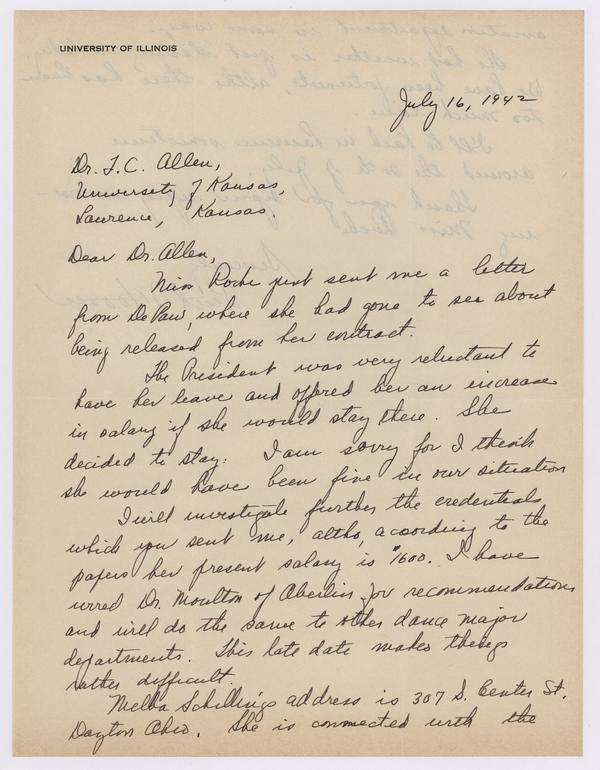 UNIVERSITY OF ILLINOIS
July 16, 1942
Dr. F. C. Allen,
University of Kansas,
Lawrence, Kansas.
Dear Dr. Allen,
Miss Roche just sent me a letter
from DePaw, where she had gone to see about
being released from her contract.
The President was very reluctant to
have her leave and offered her an increase
in salary if she would stay there. She
decided to stay. I am sorry for I think
she would have been fine in our situation
I will investigate further the credentials
which you sent me, altho, according to the
papers her present salary is $1600. I have
wired Dr. Moulton of Oberlin for recommendations
and will do the same to other dance major
departments. This late date makes things
rather difficult.
Melba Schilling's address is 307 S. Center St.
Dayton Ohio. She is connected with the